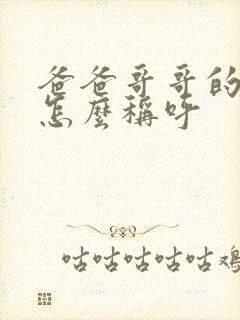 爸爸哥哥的
怎麼稱呼
咕咕咕咕咕鸡